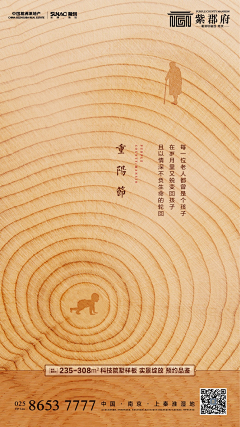 SUNAC 融创
紫郡府
重陽節
每一位老人都曾是个孩子
在岁月里又蜕变回孩子
且以情深不负生命的轮回
235-308m² 科技筑墅样板 实景绽放 预约品鉴
025
8653 7777
中国·南京·上秦淮湿地